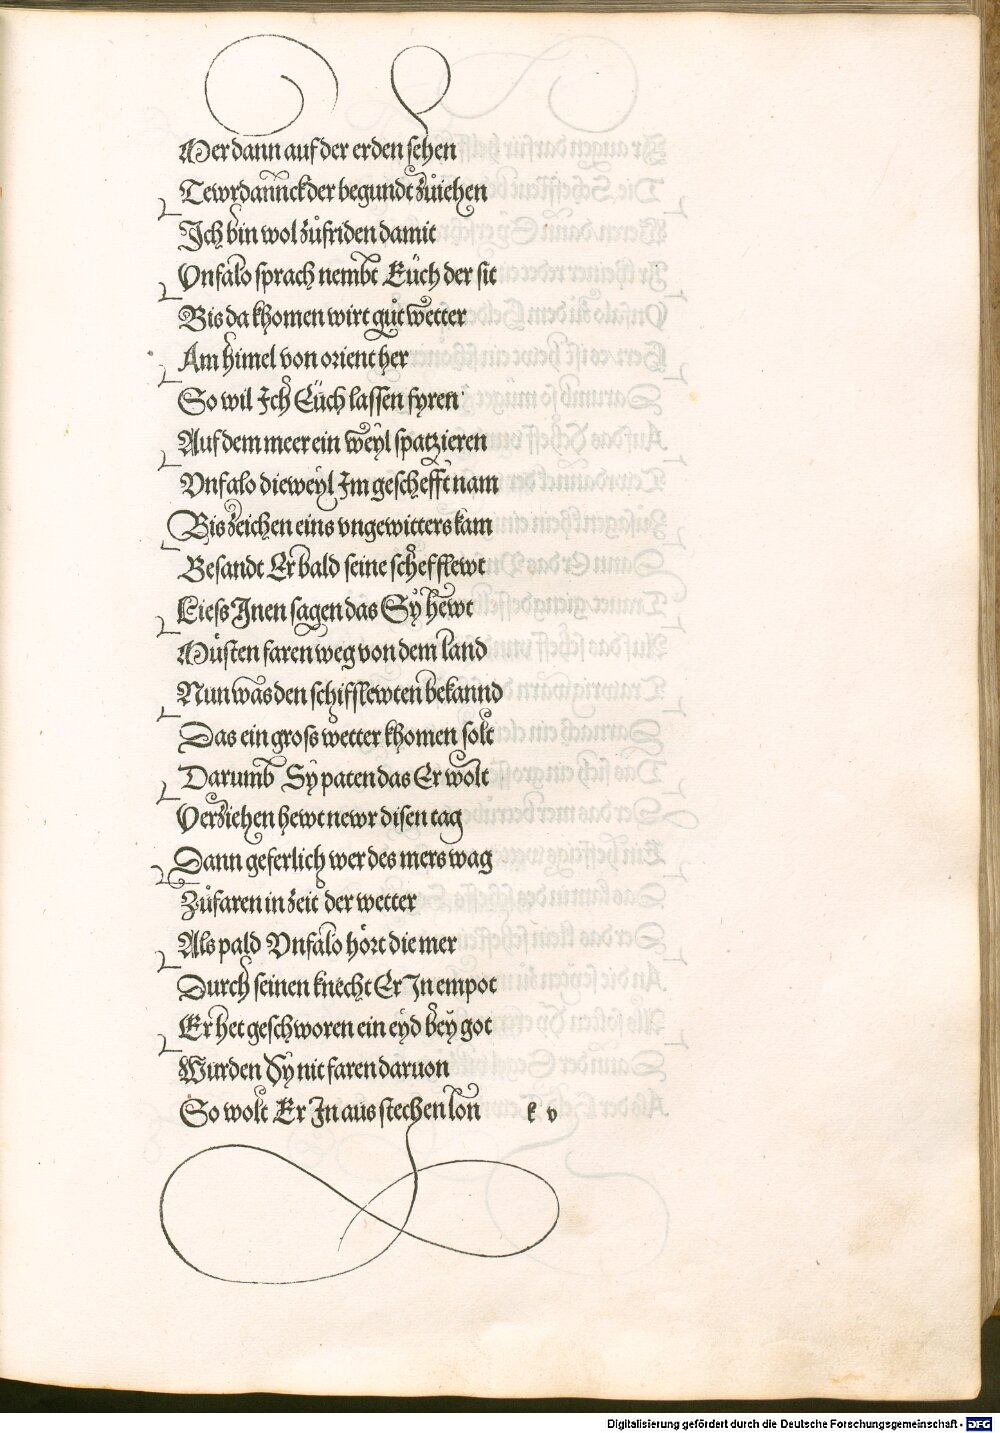 Mer dann auf der erden sehen
Tewrdannck der begundt zů iehen
Ich bin wol zůfriden damit
Vnfalo sprach nembt Eüch der sit
Bis da khomen wirt gůt wetter
Am himel von orient her
So wil Ich Eüch lassen fyren
Auf dem meer ein weyl spatzieren
Vnfalo dieweyl Im geschefft nam
Bis zeichen eins vngewitters kam
Besandt Er bald seine schefflewt
Liess Inen sagen das Sy hewt
Müsten faren weg von dem land
Nun was den schifflewten bekannd
Das ein gross wetter khomen solt
Darumb Sy paten das Er wolt
Verziehen hewt newr disen tag
Dann geferlich wer des mers wag
Zůfaren in zeit der wetter
Als pald Vnfalo hört die mer
Durch seinen knecht Er In empot
Er het geschworen ein eyd bey got
Wurden Sy nit faren daruon
So wolt Er In aus stechen lon k v
Digitalisierung gefördert durch die Deutsche Forschungsgemeinschaft - DFG